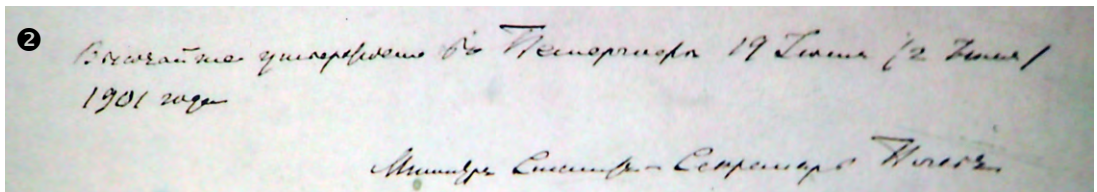 ❷
Высочайше утверждено въ Петергофѣ 19 Іюня /2 Іюля/
1901 года
Министръ Статсъ-Секретарь Плеве